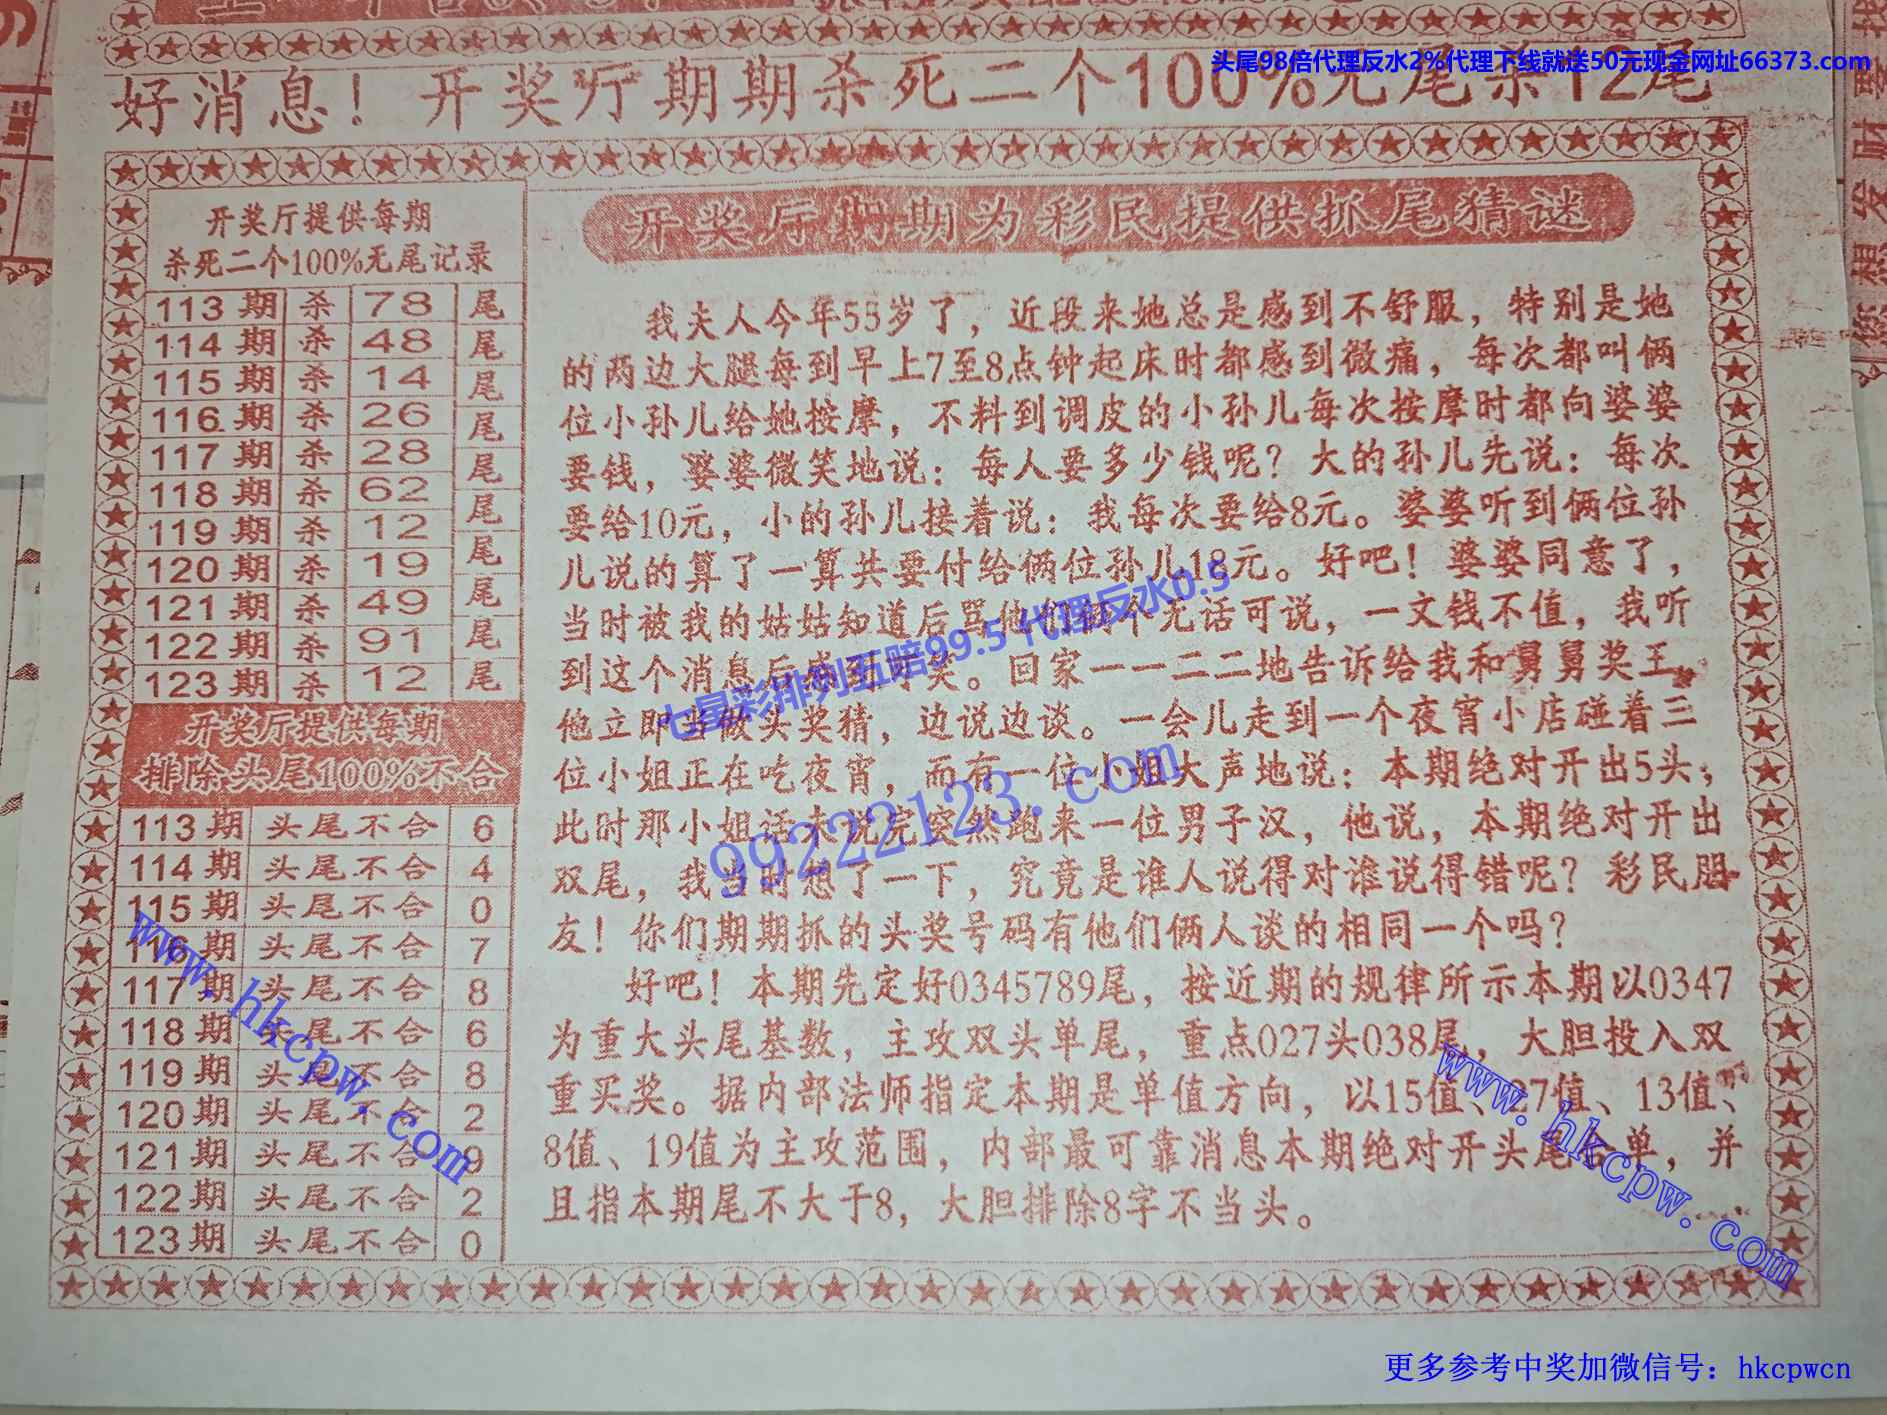 头尾98倍代理反水2%代理下线就送50元现金网址66373.com
好消息！开奖厅期期杀死二个100%无尾杀12尾
开奖厅提供每期
杀死二个100%无尾记录
113期 杀 78 尾
114期 杀 48 尾
115期 杀 14 尾
116期 杀 26 尾
117期 杀 28 尾
118期 杀 62 尾
119期 杀 12 尾
120期 杀 19 尾
121期 杀 49 尾
122期 杀 91 尾
123期 杀 12 尾
开奖厅提供每期
排除头尾100%不合
113期 头尾不合 6
114期 头尾不合 4
115期 头尾不合 0
116期 头尾不合 7
117期 头尾不合 8
118期 头尾不合 6
119期 头尾不合 8
120期 头尾不合 2
121期 头尾不合 9
122期 头尾不合 2
123期 头尾不合 0
开奖厅期期为彩民提供抓尾猜谜
我夫人今年55岁了，近段来她总是感到不舒服，特别是她
的两边大腿每到早上7至8点钟起床时都感到微痛，每次都叫俩
位小孙儿给她按摩，不料到调皮的小孙儿每次按摩时都向婆婆
要钱，婆婆微笑地说：每人要多少钱呢？大的孙儿先说：每次
要给10元，小的孙儿接着说：我每次要给8元。婆婆听到俩位孙
儿说的算了一算共要付给俩位孙儿18元。好吧！婆婆同意了，
当时被我的姑姑知道后骂他们俩个无话可说，一文钱不值，我听
到这个消息后感到可笑。回家一一二二地告诉给我和舅舅奖王，
他立即当做头奖猜，边说边谈。一会儿走到一个夜宵小店碰着三
位小姐正在吃夜宵，而有一位小姐大声地说：本期绝对开出5头；
此时那小姐话未说完突然跑来一位男子汉，他说，本期绝对开出
双尾，我当时想了一下，究竟是谁人说得对谁说得错呢？彩民朋
友！你们期期抓的头奖号码有他们俩人谈的相同一个吗？
好吧！本期先定好0345789尾，按近期的规律所示本期以0347
为重大头尾基数，主攻双头单尾，重点027头038尾，大胆投入双
重买奖。据内部法师指定本期是单值方向，以15值、27值、13值、
8值、19值为主攻范围，内部最可靠消息本期绝对开头尾合单，并
且指本期尾不大于8，大胆排除8字不当头。
七星彩排列五赔99.5 代理反水0.5
99222123.com
www.hkcpw.com
www.hkcpw.com
您想发财要
更多参考中奖加微信号：hkcpwcn